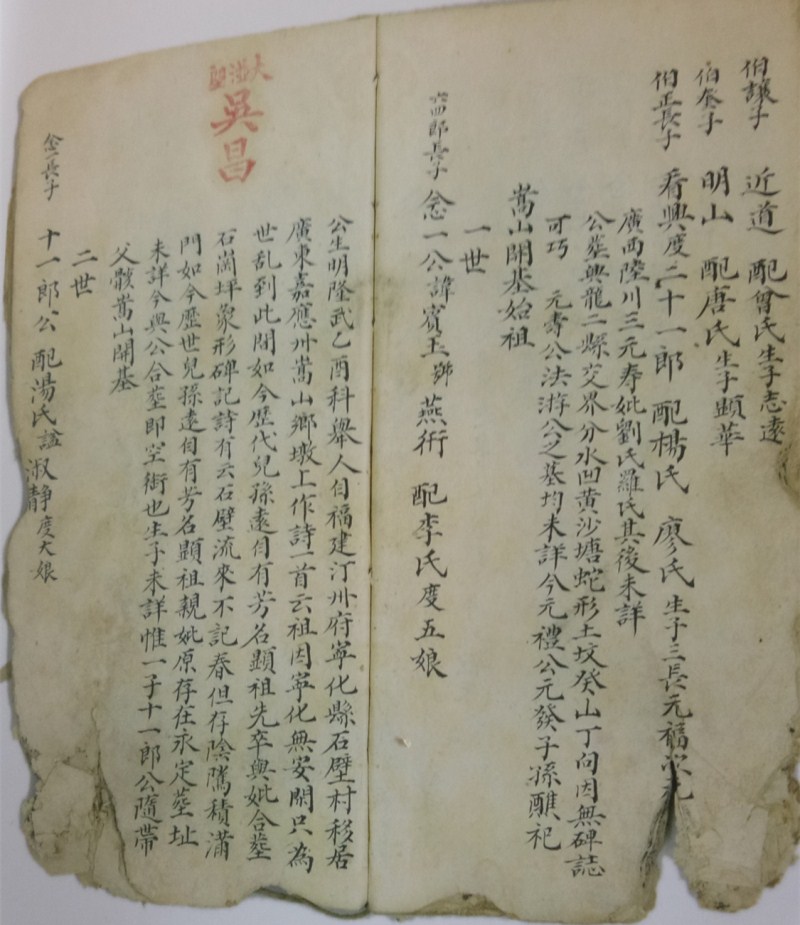 伯讓子 近道 配曾氏生子志遠
伯奎子 明山 配唐氏生子顕華
伯正長子 看興度二十一郎 配楊氏 廖氏生子三長元福次元
廣西陸川三元寿妣劉氏羅氏其後未詳
公塟興龍二縣交界分水凹黄沙塘蛇形土坟癸山丁向因無碑誌
可巧 元寿公法游公之墓均未詳今元禮公元發子孫醮祀
嵩山開基始祖
一世
六四郎長子 念一公諱賓玉 鄉 燕術 配李氏度五娘
公生明隆武乙酉科舉人自福建汀州府寧化縣石壁村移居
廣東嘉應州嵩山鄉墩上作詩一首云祖因寧化無安閑只為
世乱到此閑如今歷代兒孫遠自有芳名顕祖先卒與妣合塟
石崗坪象形碑記詩有云石壁流來不記春但存陰隲積滿
門如今歷世兒孫遠自有芳名顕祖親妣原存在永定塟址
未詳今與公合塟即空衔也生子未詳惟一子十一郎公隨帶
父骸嵩山開基
二世
念一長子 十一郎公 配湯氏諡淑靜度大娘
吳昌